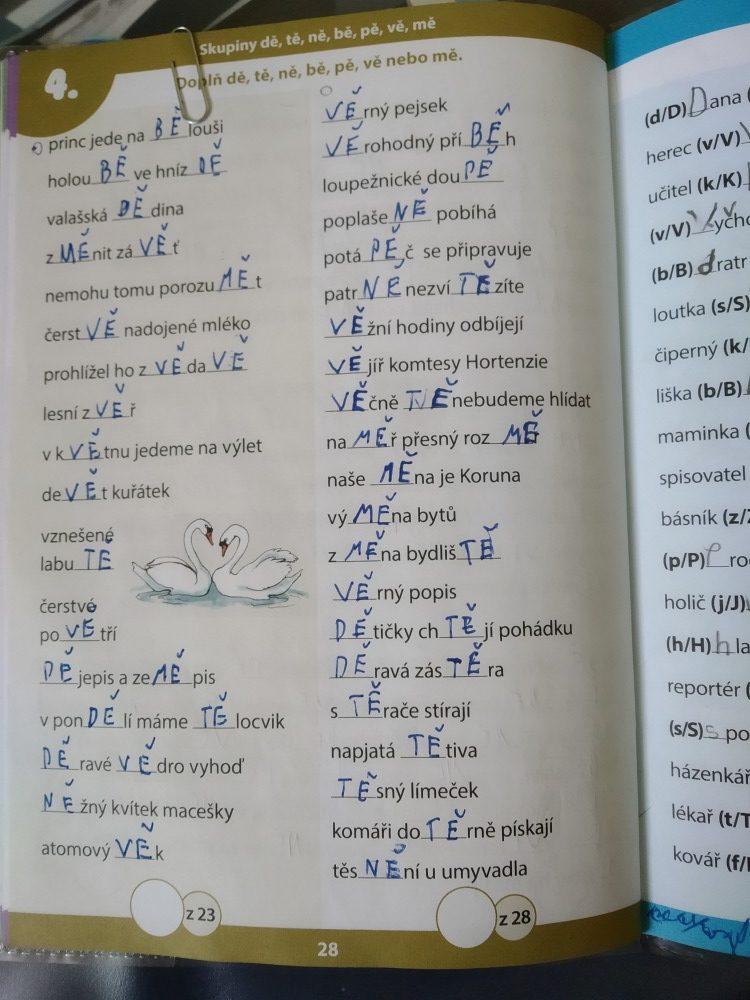 Skupiny dě, tě, ně, bě, pě, vě, mě
4.
Doplň dě, tě, ně, bě, pě, vě nebo mě.
princ jede na BĚlouši
holouBĚ ve hnízDĚ
valašská DĚdina
zMĚnit záVĚť
nemohu tomu porozuMĚt
čerstVĚ nadojené mléko
prohlížel ho zVĚdaVĚ
lesní zVĚř
v kVĚtnu jedeme na výlet
deVĚt kuřátek
vznešené
labuTĚ
čerstvé
poVĚtří
DĚjepis a zeMĚpis
v ponDĚlí máme TĚlocvik
DĚravé VĚdro vyhoď
NĚžný kvítek macešky
atomový VĚk
z 23
VĚrný pejsek
VĚrohodný příBĚh
loupežnické douPĚ
poplašeNĚ pobíhá
potáPĚč se připravuje
patrNĚ nezvíTĚzíte
VĚžní hodiny odbíjejí
VĚjíř komtesy Hortenzie
VĚčně TVĚ nebudeme hlídat
naMĚř přesný rozMĚR
naše MĚna je Koruna
výMĚna bytů
zMĚna bydlišTĚ
VĚrný popis
DĚtičky chTĚjí pohádku
DĚravá zásTĚra
sTĚrače stírají
napjatá TĚtiva
TĚsný límeček
komáři doTĚrně pískají
těsNĚní u umyvadla
z 28
28
(d/D)Dana
herec (v/V)
učitel (k/K)
(v/V)Vycho
(b/B)dratr
loutka (s/S)
čiperný (k/
liška (b/B)
maminka (
spisovatel
básník (z/Z
(p/P)Pro
holič (j/J)
(h/H)hla
reportér (
(s/S)spo
házenkář
lékař (t/T
kovář (f/